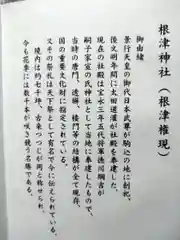 根津神社（根津権現）
御由緒
景行天皇の御代日本武尊が駒込の地に創祀、
後文明年間に太田道灌が社殿を奉建した。
現在の社殿は宝永三年五代将軍徳川綱吉が
嗣子家宣の氏神として当地に奉建したもので、
当時の唐門、透塀、楼門等の結構が全て現存、
国の重要文化財に指定されている。
又その祭礼は天下祭として有名で今に伝えられている。
境内は約七千坪、古来つつじが岡と称せられ、
今も花季には数千本が咲き競う名勝である。